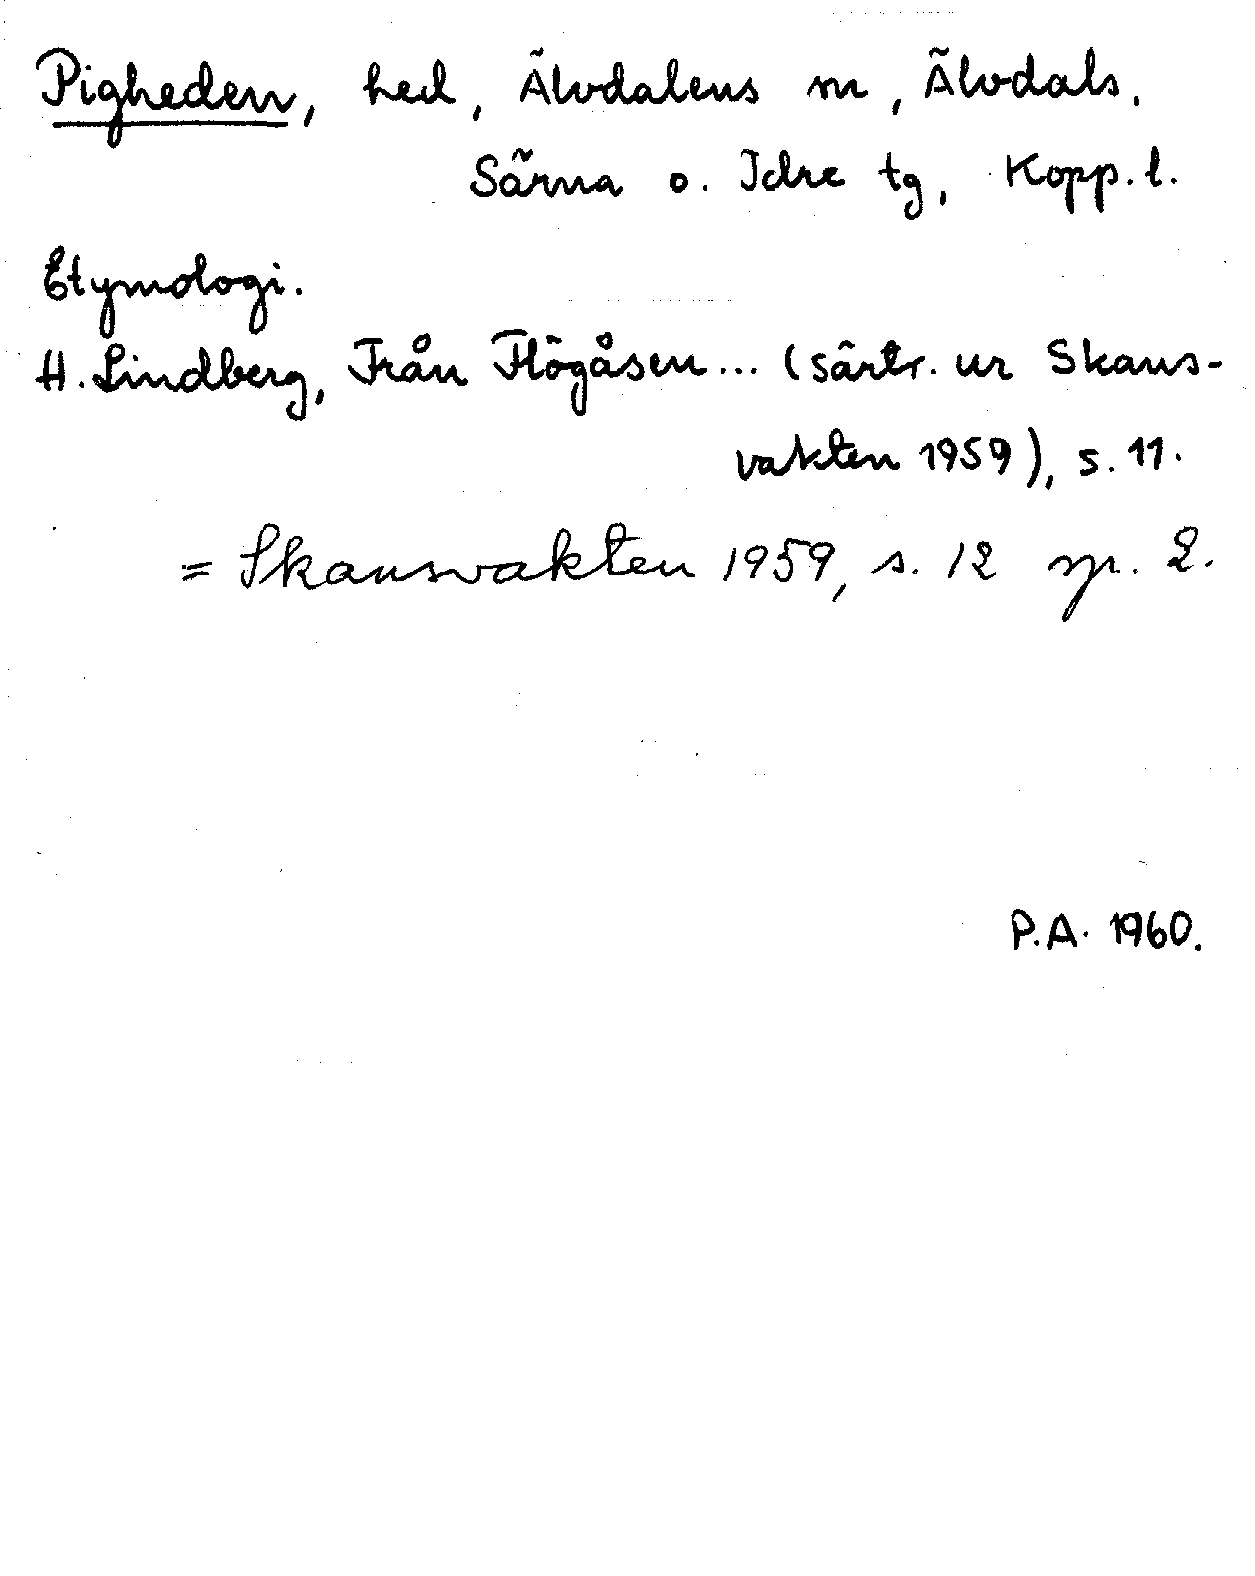 Pigheden, hed, Älvdalens sn, Älvdals,
Särna o. Idre tg, Kopp. l.
Etymologi.
H. Lindberg, Från Flögåsen... (särtr. ur Skans-
vakten 1959), s. 11.
= Skansvakten 1959, s. 12 sp. 2.
P.A. 1960.